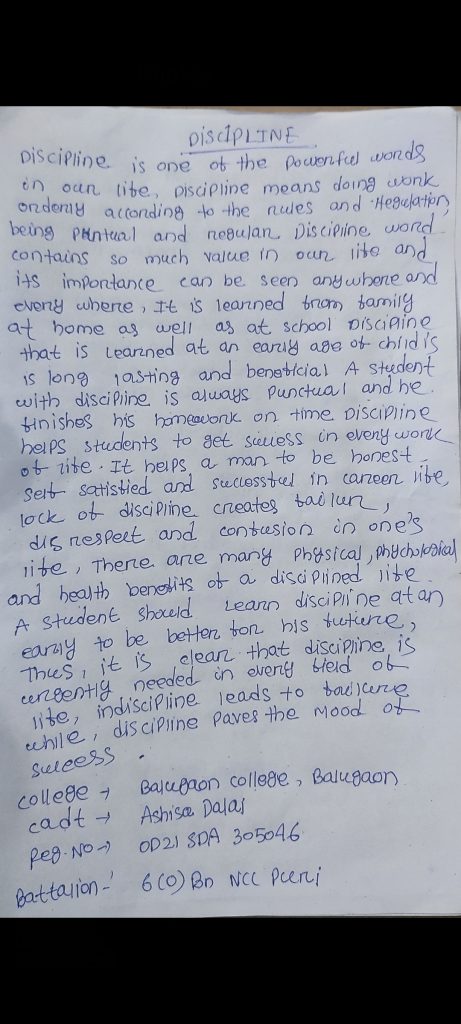 DISCIPLINE
Discipline is one of the powerful words
in our life, Discipline means doing work
orderly according to the rules and Regulation,
being puntual and regular Discipline word
contains so much value in our life and
its importance can be seen anywhere and
every where, It is learned from family
at home as well as at school Discipline
that is learned at an early age of child is
is long lasting and beneficial A student
with discipline is always Punctual and he
finishes his homework on time Discipline
helps students to get success in every work
of life. It helps a man to be honest
self satisfied and successful in career life,
lock of discipline creates failur,
disrespect and confusion in one's
life, There are many physical, phychological
and health benefits of a disciplined life
A student should Learn discipline at an
early to be better for his future,
Thus, it is clear that discipline is
urgently needed in every field of
life, indiscipline leads to failure
while, discipline paves the Mood of
success.
college → Balugaon college, Balugaon
cadt → Ashisa Dalai
Reg. No → OD21 SDA 305046
Battalion - 6(O) Bn NCC Puri